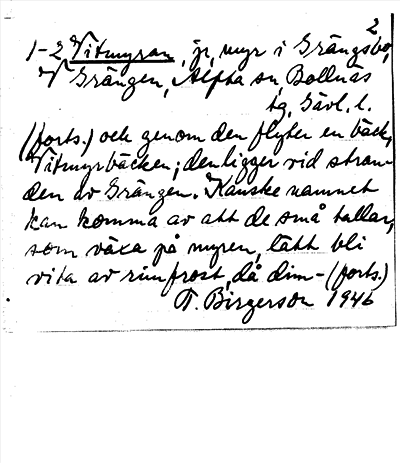 2
1-2 Vitmyran, jr, myr i Grängsbo,
V Grängen, Alfta sn, Bollnäs
tg, Gävl. l.
(forts.) och genom den flyter en bäck,
Vitmyrbäcken; den ligger vid stran-
den av Grängen. Kanske namnet
kan komma av att de små tallar,
som växa på myren, lätt bli
vita av rimfrost, då dim- (forts.)
T. Birgerson 1946